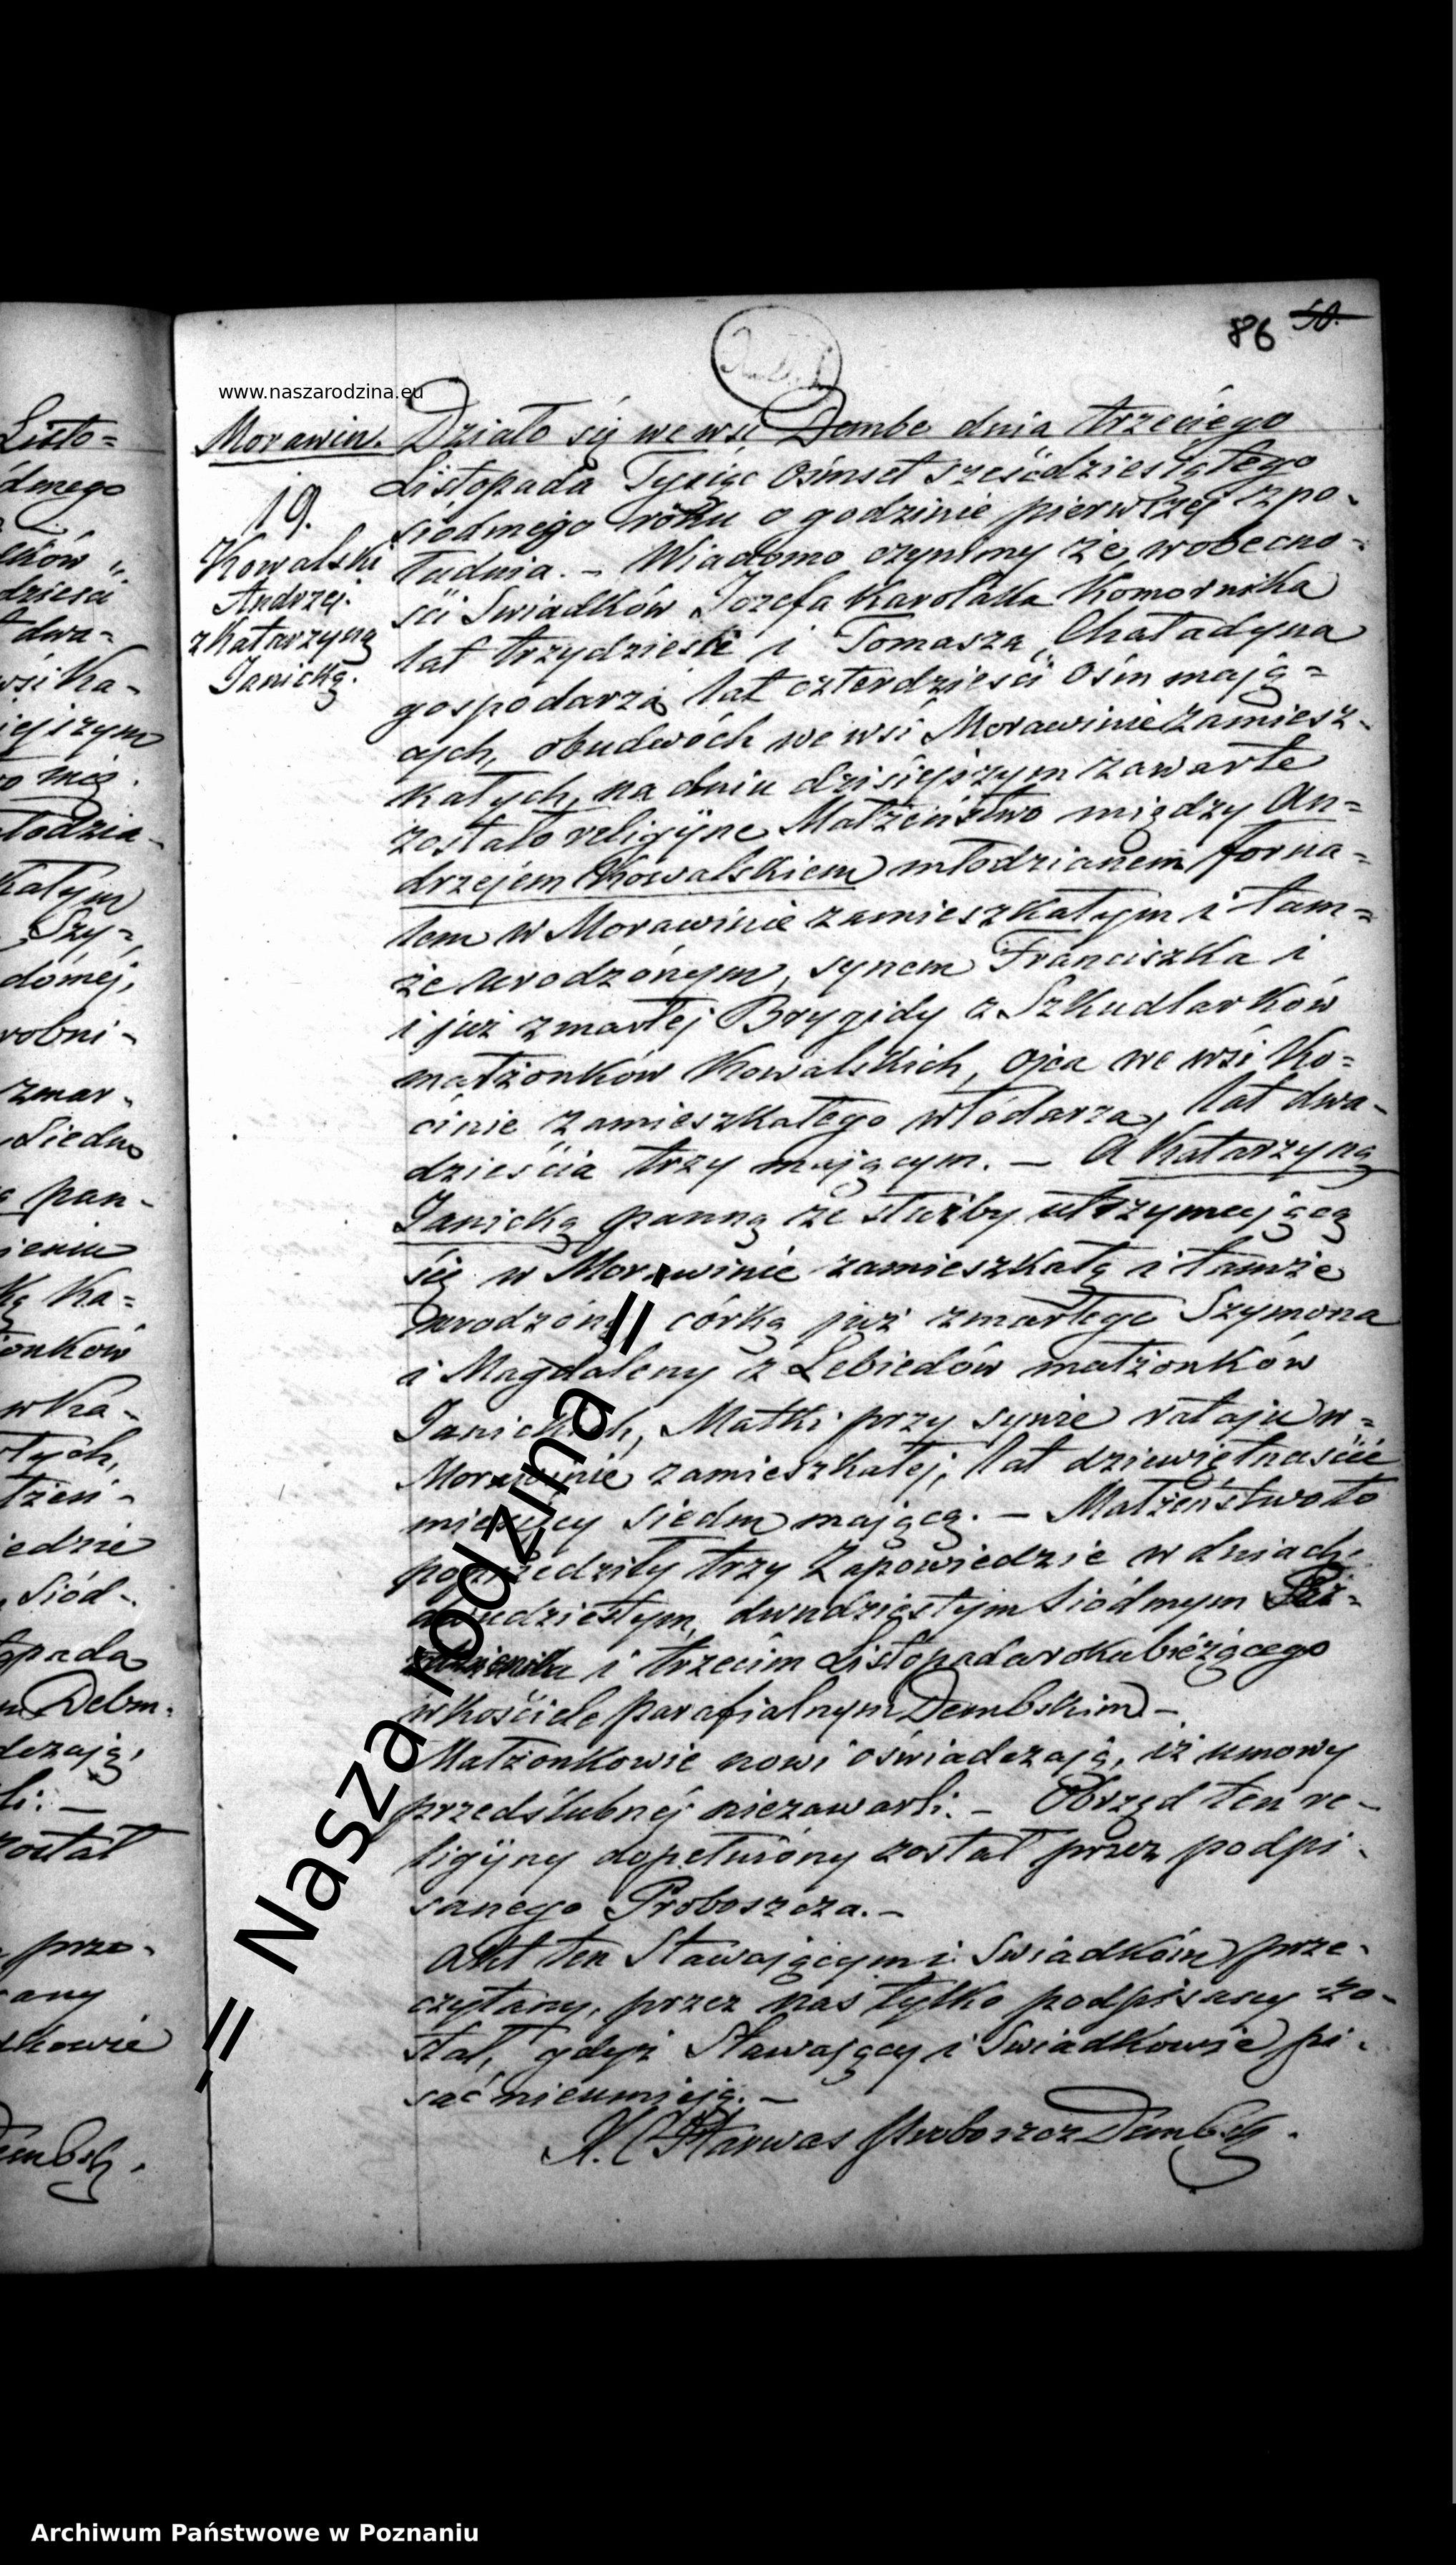 86 50.
www.naszarodzina.eu
Listo=
dmego
ków
dzieści
dwa=
wsi Ka-
iejszym
o mię.
łodzia-
kałym
Szy=
domej,
robni-
zmar-
Siedm
pan-
ieniu
ką Ka=
onków
w Ka-
łych,
tżeń-
iednie
Siód-
opada
Debm.
dczają,
li. —
został
prze-
any
dkowie
Dembsky.
Morawin.
19.
Kowalski
Andrzej.
z Katarzyną
Janicką.
Działo się we wsi Dembe dnia trzeciego
Listopada Tysiąc Ośmset sześćdziesiątego
siodmego roku o godzinie pierwszej z po-
łudnia. – Wiadomo czynimy że, wobecno-
ści Swiadków Jozefa Karolaka Komornika
lat trzydzieści i Tomasza Chaładyna
gospodarza lat czterdzieści ośm mają=
cych, obudwóch we wsi Morawinie zamiesz-
kałych, na dniu dzisiejszym zawarte
zostało religijne Małżeństwo między An=
drzejem Kowalskiem młodzianem forna=
lem w Morawinie zamieszkałym i tam=
że urodzonym, synem Franciszka i
i już zmarłej Brygidy z Szkudlarków
małżonków Kowalskich, ojca we wsi Ko=
cinie zamieszkałego włodarza, lat dwa-
dzieścia trzy mającym. — A Katarzyną
Janicką panną ze służby utrzymującą
się w Morawinie zamieszkałą i tamże
urodzoną córką już zmarłego Szymona
i Magdaleny z Lebiedów małżonków
Janickich, Matki przy synie rataju w=
Morawinie zamieszkałej, lat dziewiętnaście
miesięcy siedm mającą. — Małżeństwo to
poprzedziły trzy Zapowiedzie w dniach,
dwudziestym, dwudziestym siódmym Paź-
dziernika i trzecim Listopada roku bieżącego
w kościele parafialnym Dembskim –
Małżonkowie nowi oświadczają, iż umowy
przedślubnéj niezawarli. – Obrzęd ten re-
ligijny dopełniony został przez podpi-
sanego Proboszcza. –
Akt ten Stawającym i Swiadkóm prze-
czytany, przez nas tylko podpisany zo-
stał, gdyż Stawający i Swiadkowie pi-
sać nieumieją. –
X. Starwas Proboszcz Dembsky.
-= Nasza rodzina =-
Archiwum Państwowe w Poznaniu